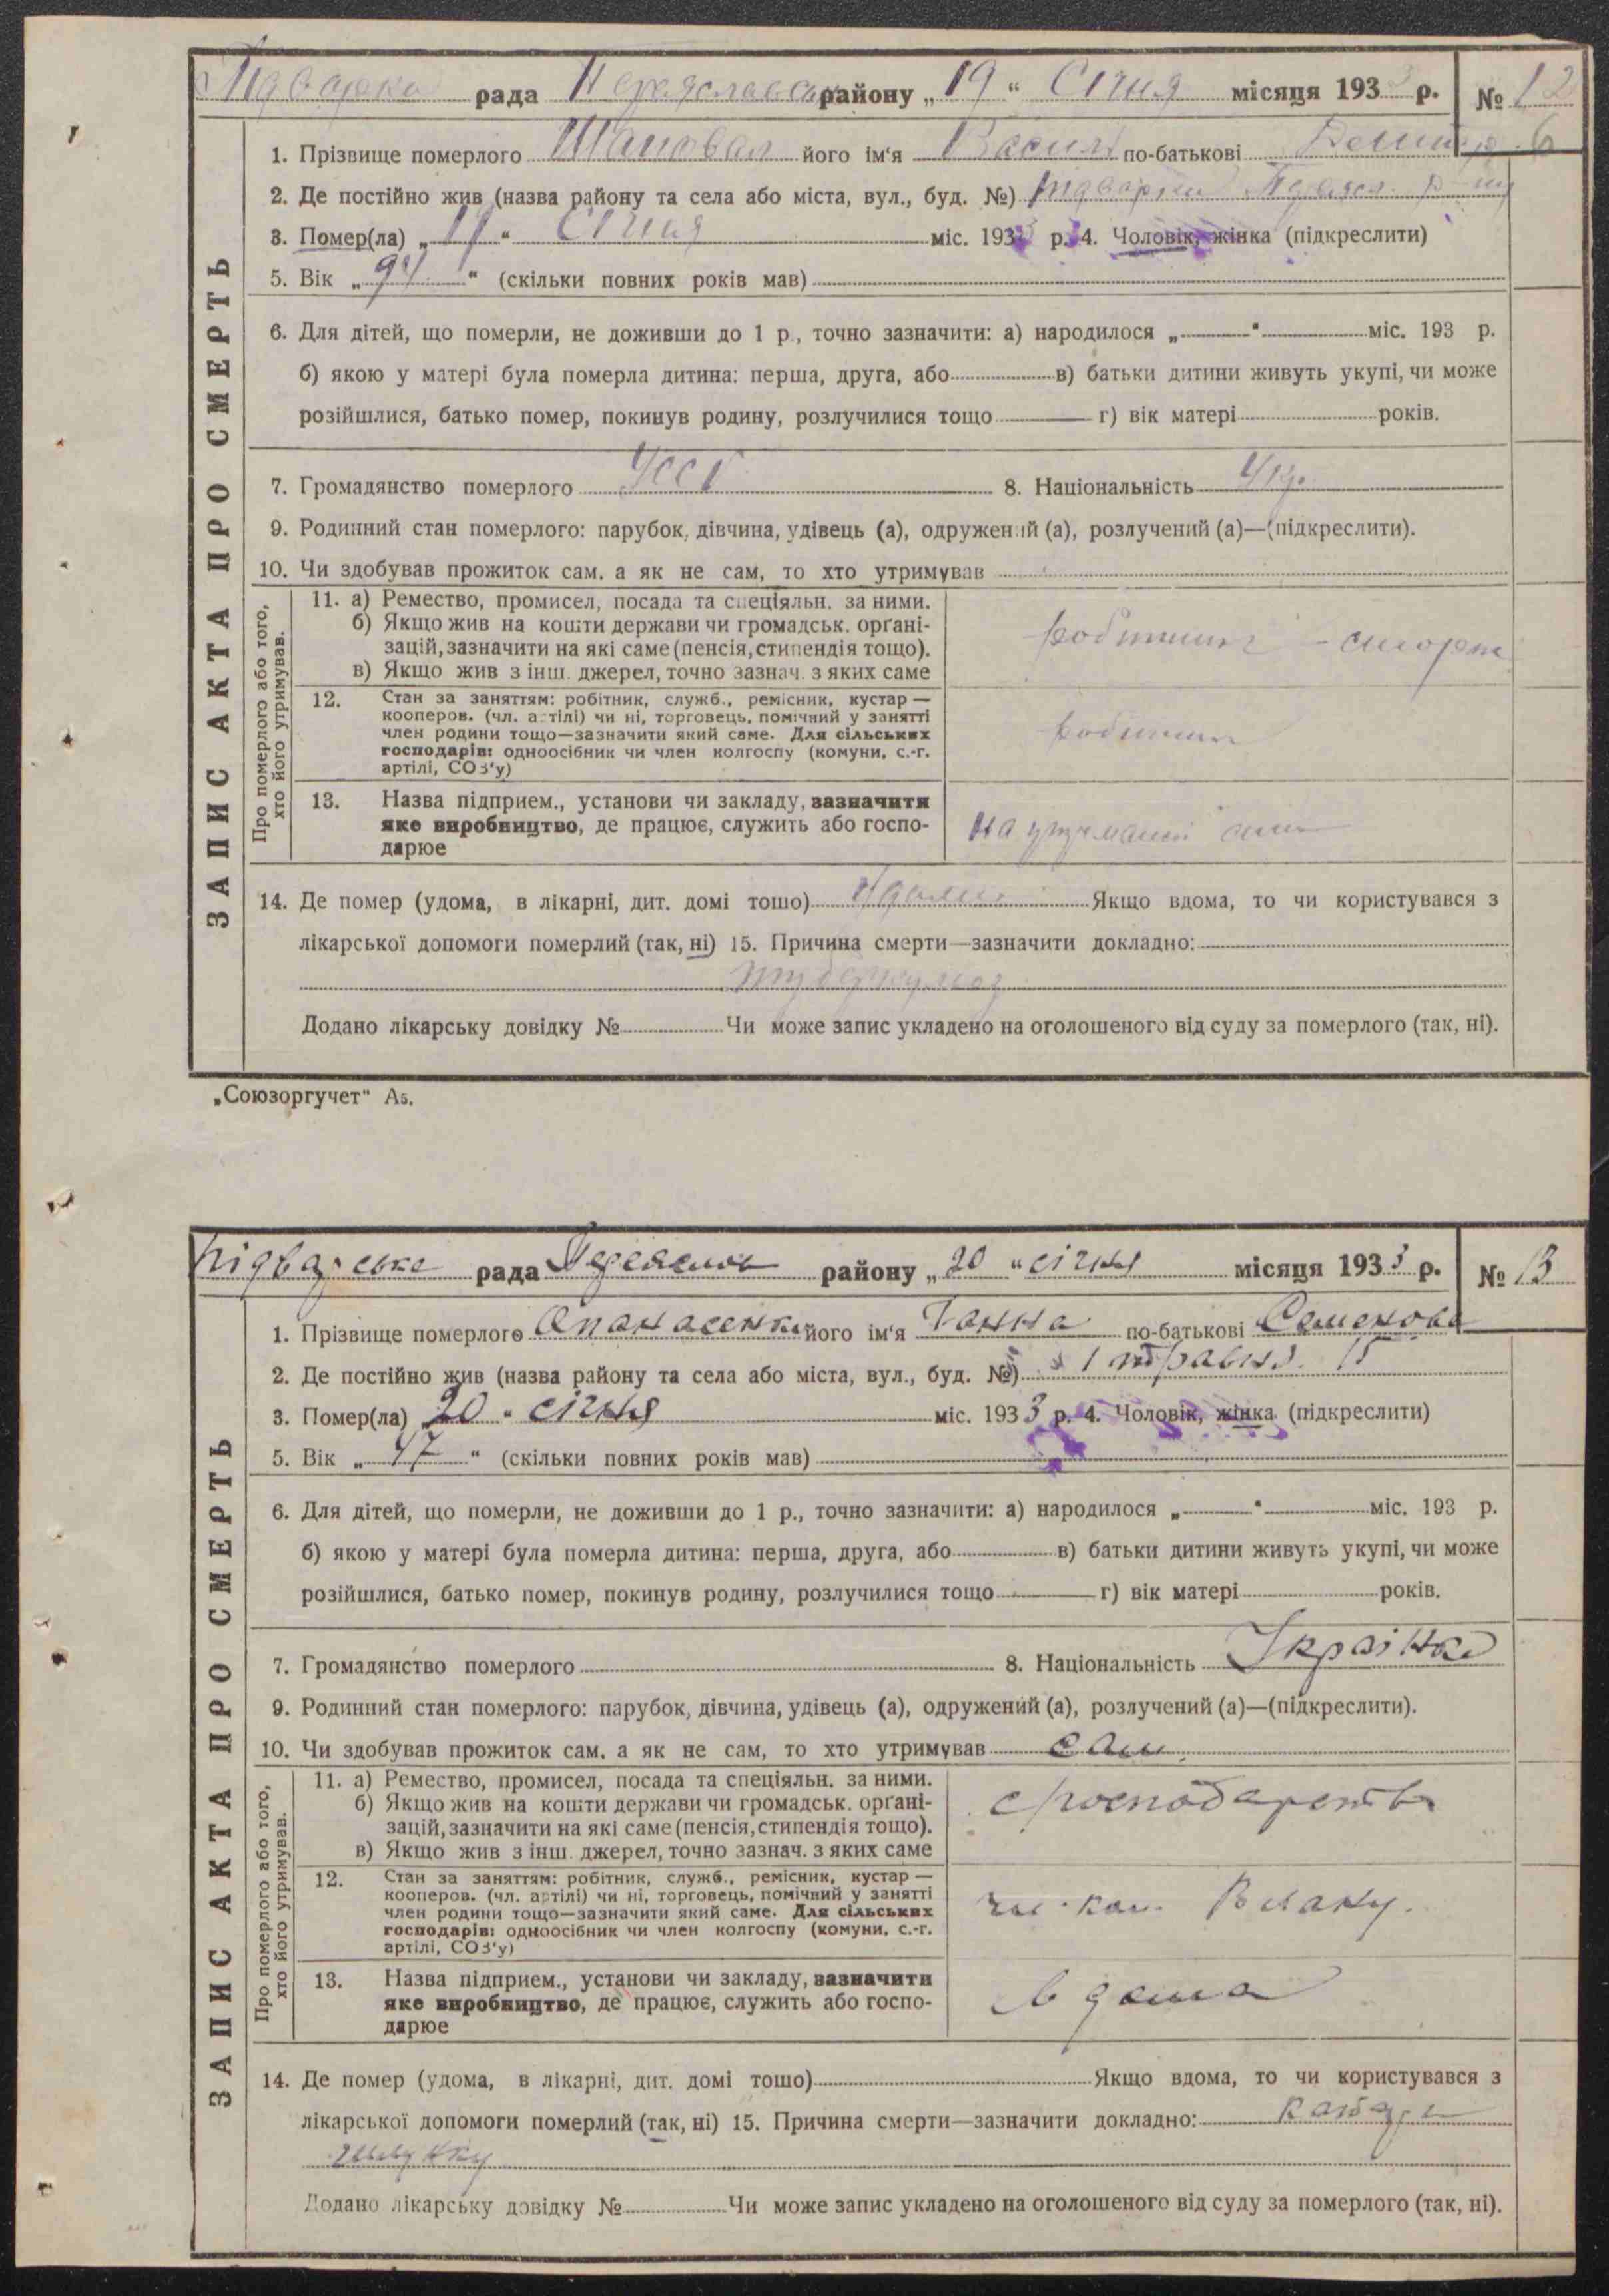 Підварки рада Переяславськ району „19“ Січня місяця 1933 р. № 12
1. Прізвище померлого Шаповал його ім'я Василь по-батькові
2. Де постійно жив (назва району та села або міста, вул., буд. №) Підварки Переясл. р-ну
3. Помер(ла) „ “ Січня міс. 193 р. 4. Чоловік, жінка (підкреслити)
5. Вік „94“ (скільки повних років мав)
6. Для дітей, що померли, не доживши до 1 р., точно зазначити: а) народилося „ “ міс. 193 р.
б) якою у матері була померла дитина: перша, друга, або в) батьки дитини живуть укупі, чи може
розійшлися, батько помер, покинув родину, розлучилися тощо г) вік матері років.
7. Громадянство померлого УССР 8. Національність Укр.
9. Родинний стан померлого: парубок, дівчина, удівець (а), одружений (а), розлучений (а)—(підкреслити).
10. Чи здобував прожиток сам, а як не сам, то хто утримував
Про померлого або того,
хто його утримував.
11. а) Ремество, промисел, посада та спеціяльн. за ними.
б) Якщо жив на кошти держави чи громадськ. органі-
зацій, зазначити на які саме (пенсія, стипендія тощо).
в) Якщо жив з інш. джерел, точно зазнач. з яких саме
робітник - сторож
12. Стан за заняттям: робітник, служб., ремісник, кустар —
кооперов. (чл. артілі) чи ні, торговець, помічний у занятті
член родини тощо—зазначити який саме. Для сільських
господарів: одноосібник чи член колгоспу (комуни, с.-г.
артілі, СОЗ'у)
робітник
13. Назва підприєм., установи чи закладу, зазначити
яке виробництво, де працює, служить або госпо-
дарює
на утриманні сина
14. Де помер (удома, в лікарні, дит. домі тощо) Удома Якщо вдома, то чи користувався з
лікарської допомоги померлий (так, ні) 15. Причина смерти—зазначити докладно:
туберкульоз
Додано лікарську довідку № Чи може запис укладено на оголошеного від суду за померлого (так, ні).
ЗАПИС АКТА ПРО СМЕРТЬ
„Союзоргучет“ А5.
Підварське рада Переяслав району „20“ січня місяця 1933 р. № 13
1. Прізвище померлого Опанасенко його ім'я Ганна по-батькові Семенова
2. Де постійно жив (назва району та села або міста, вул., буд. №) 1 травня 15
3. Помер(ла) „20“ січня міс. 1933 р. 4. Чоловік, жінка (підкреслити)
5. Вік „47“ (скільки повних років мав)
6. Для дітей, що померли, не доживши до 1 р., точно зазначити: а) народилося „ “ міс. 193 р.
б) якою у матері була померла дитина: перша, друга, або в) батьки дитини живуть укупі, чи може
розійшлися, батько помер, покинув родину, розлучилися тощо г) вік матері років.
7. Громадянство померлого 8. Національність Українка
9. Родинний стан померлого: парубок, дівчина, удівець (а), одружений (а), розлучений (а)—(підкреслити).
10. Чи здобував прожиток сам, а як не сам, то хто утримував сам.
Про померлого або того,
хто його утримував.
11. а) Ремество, промисел, посада та спеціяльн. за ними.
б) Якщо жив на кошти держави чи громадськ. органі-
зацій, зазначити на які саме (пенсія, стипендія тощо).
в) Якщо жив з інш. джерел, точно зазнач. з яких саме
с/господарств
12. Стан за заняттям: робітник, служб., ремісник, кустар —
кооперов. (чл. артілі) чи ні, торговець, помічний у занятті
член родини тощо—зазначити який саме. Для сільських
господарів: одноосібник чи член колгоспу (комуни, с.-г.
артілі, СОЗ'у)
13. Назва підприєм., установи чи закладу, зазначити
яке виробництво, де працює, служить або госпо-
дарює
вдома
14. Де помер (удома, в лікарні, дит. домі тощо) Якщо вдома, то чи користувався з
лікарської допомоги померлий (так, ні) 15. Причина смерти—зазначити докладно: катар
шлунку
Додано лікарську довідку № Чи може запис укладено на оголошеного від суду за померлого (так, ні).
ЗАПИС АКТА ПРО СМЕРТЬ